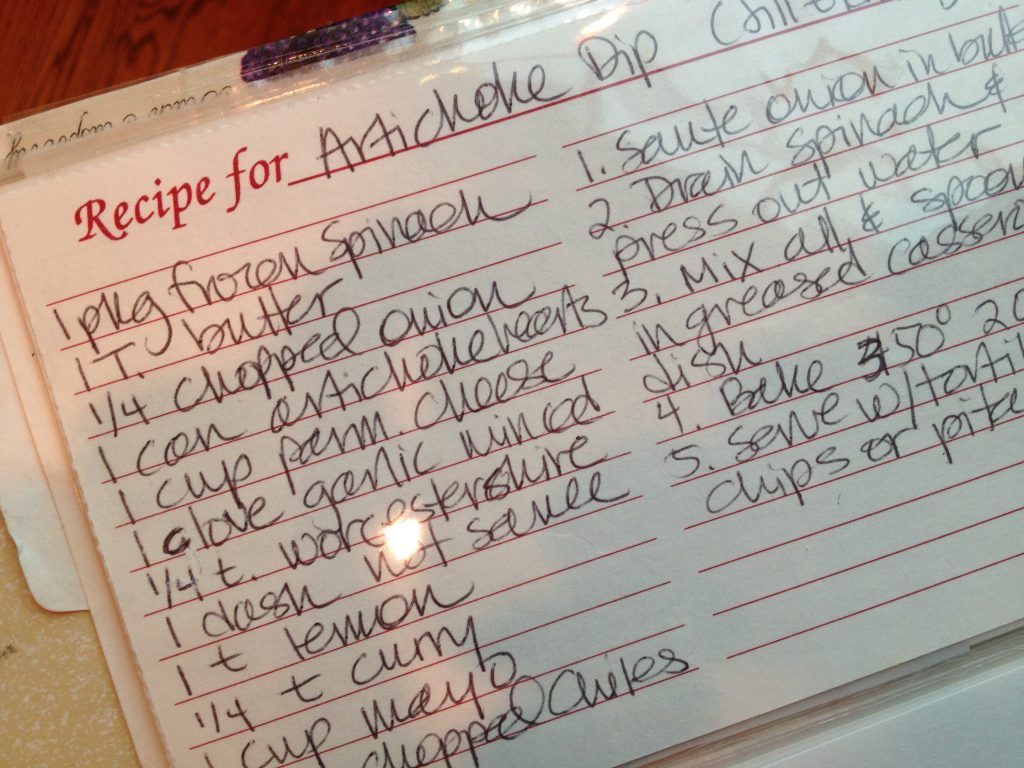 Recipe for Artichoke Dip
1 pkg frozen spinach
1 T. butter
1/4 chopped onion
1 can artichoke hearts
1 cup parm cheese
1 clove garlic minced
1/4 t. worcestershire
1 dash hot sauce
1 t lemon
1/4 t curry
1 cup mayo
chopped chiles
1. Saute onion in
2. Drain spinach &
press out water
3. Mix all, & spoon
in greased
dish
4. Bake 350°
5. Serve w/
chips or pita